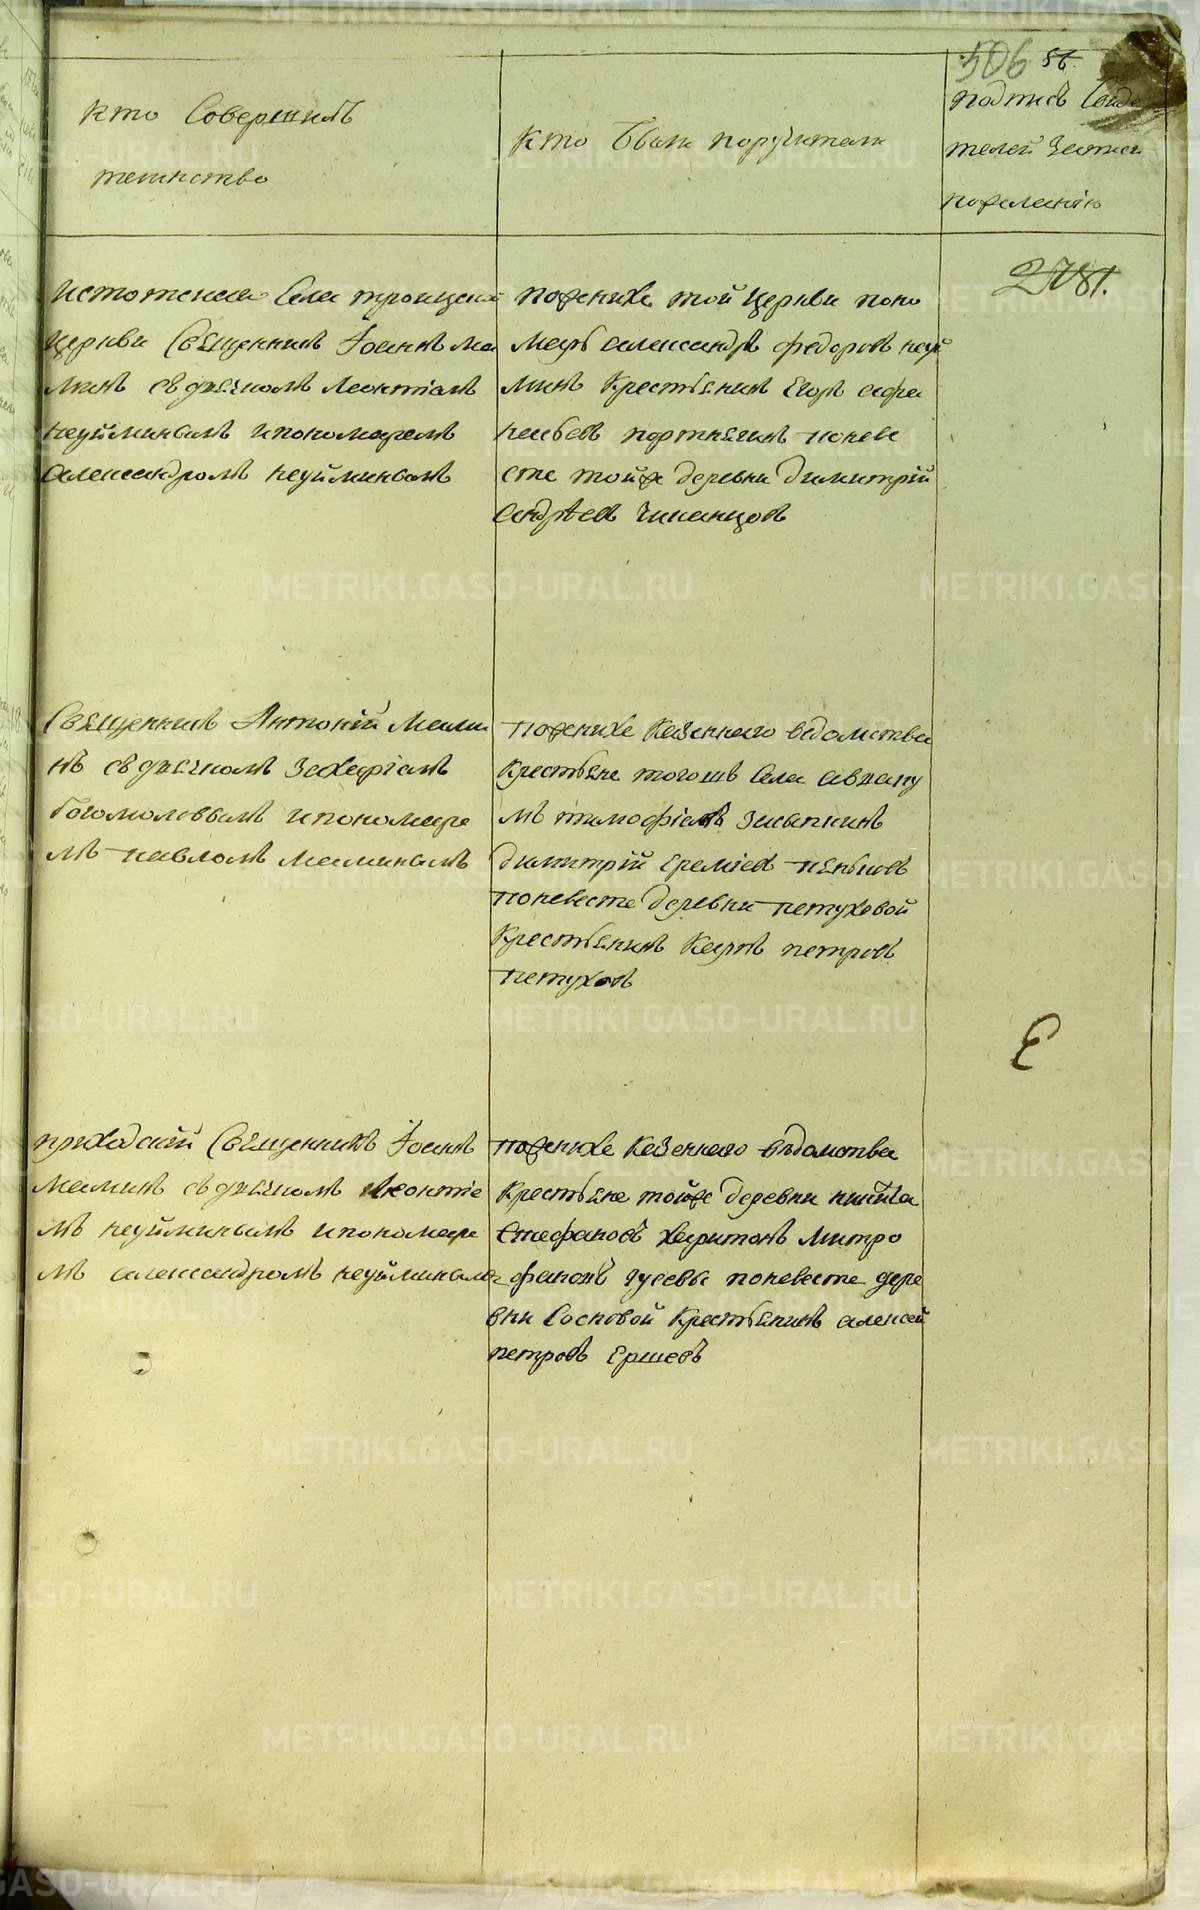 506 56.
Кто Совершилъ
таинство
Кто Были поручители
подпись Свиде
телей Записи
пожеланію
2781.
Истокскаго Села троицкой
Церкви Священникъ Іоаннъ Ма
минъ съ дьячкомъ Леонтіемъ
неуйминымъ и пономаремъ
александромъ неуйминымъ
пожених­е той Церкви поно
марь александръ федоровъ неуй
минъ Крестьянинъ Егоръ афа
насьевъ портнягинъ поневе
сте тойже деревни Димитрій
андрѣевъ Чиканцовъ
Священникъ Антоній Мами
нъ съ дьячкомъ захаріемъ
богомоловымъ и пономаре
мъ павломъ маминымъ
пожених­е Казеннаго ведомства
Крестьяне тогожъ Села
тимофѣй
Димитрій Еремѣевъ пеньковъ
поневесте деревни петуховой
Крестьянинъ Карпъ петровъ
петуховъ
приходскій Священникъ Іоаннъ
Маминъ съ дьячкомъ Леонтіе
мъ неуйминымъ и пономаре
мъ александромъ неуйминымъ
пожених­е Казеннаго вѣдомства
Крестьяне тойже деревни никита
Стафановъ харитонъ Митро
фановъ гусевы поневесте дере
вни Сосновой Крестьянинъ алексей
петровъ Ершевъ
METRIKI.GASO-URAL.RU